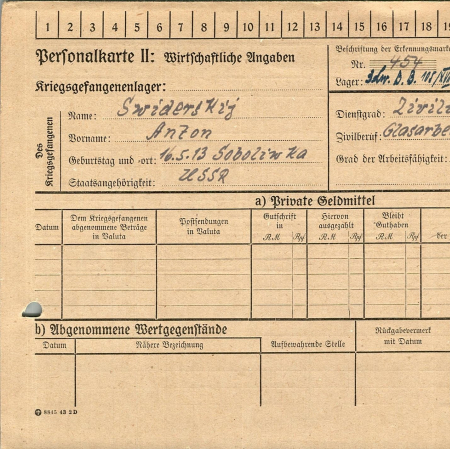 1 2 3 4 5 6 7 8 9 10 11 12 13 14 15 16 17 18 19
Personalkarte II: Wirtschaftliche Angaben
Beschriftung der Erkennungsmarke
Nr. 454
Kriegsgefangenenlager:
Lager:
Des Kriegsgefangenen
Name: Swiderskij
Dienstgrad: Zivili
Vorname: Anton
Zivilberuf: Glasarbe
Geburtstag und -ort: 16.5.13 Soboliwka
Grad der Arbeitsfähigkeit:
Staatsangehörigkeit: USSR
a) Private Geldmittel
Datum
Dem Kriegsgefangenen abgenommene Beträge in Valuta
Postsendungen in Valuta
Gutschrift in RM Rpf
Hiervon ausgezahlt RM Rpf
Bleibt Guthaben RM Rpf
der
b) Abgenommene Wertgegenstände
Datum
Nähere Bezeichnung
Aufbewahrende Stelle
Rückgabevermerk mit Datum
8845 43 2D